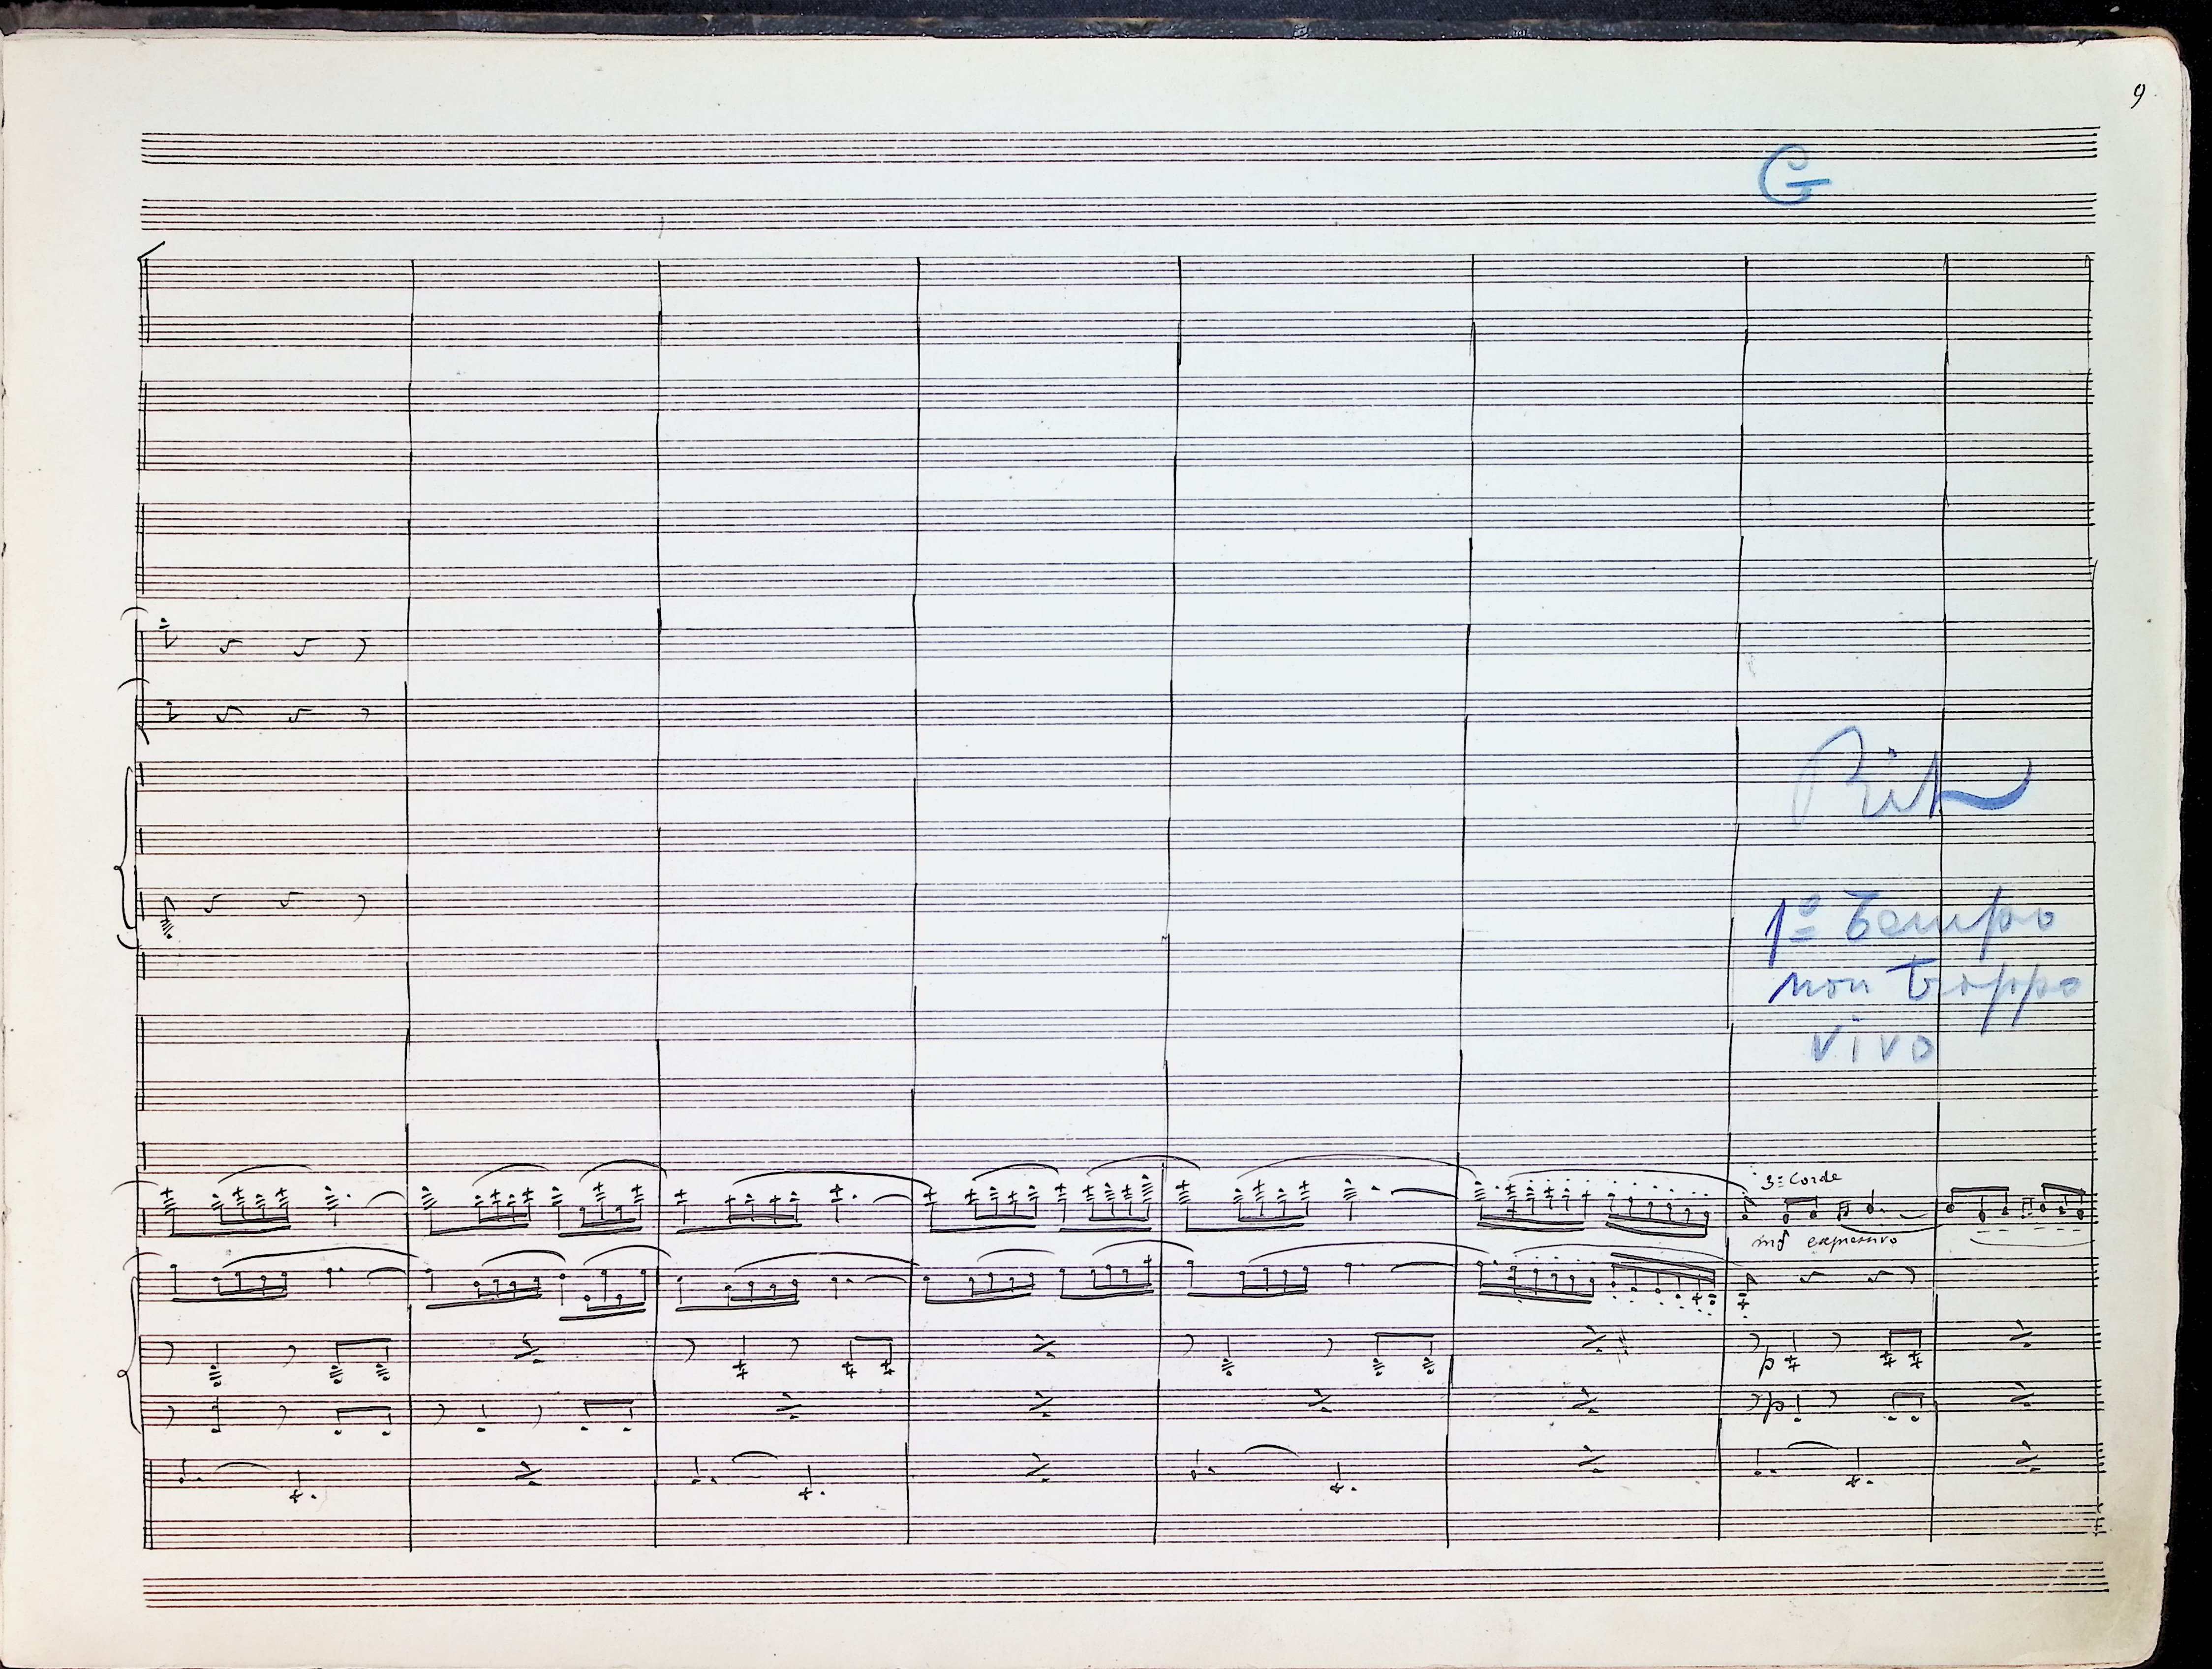 9
G
Rit
1º Tempo
non troppo
vivo
3e Corde
mf espressivo
p
p